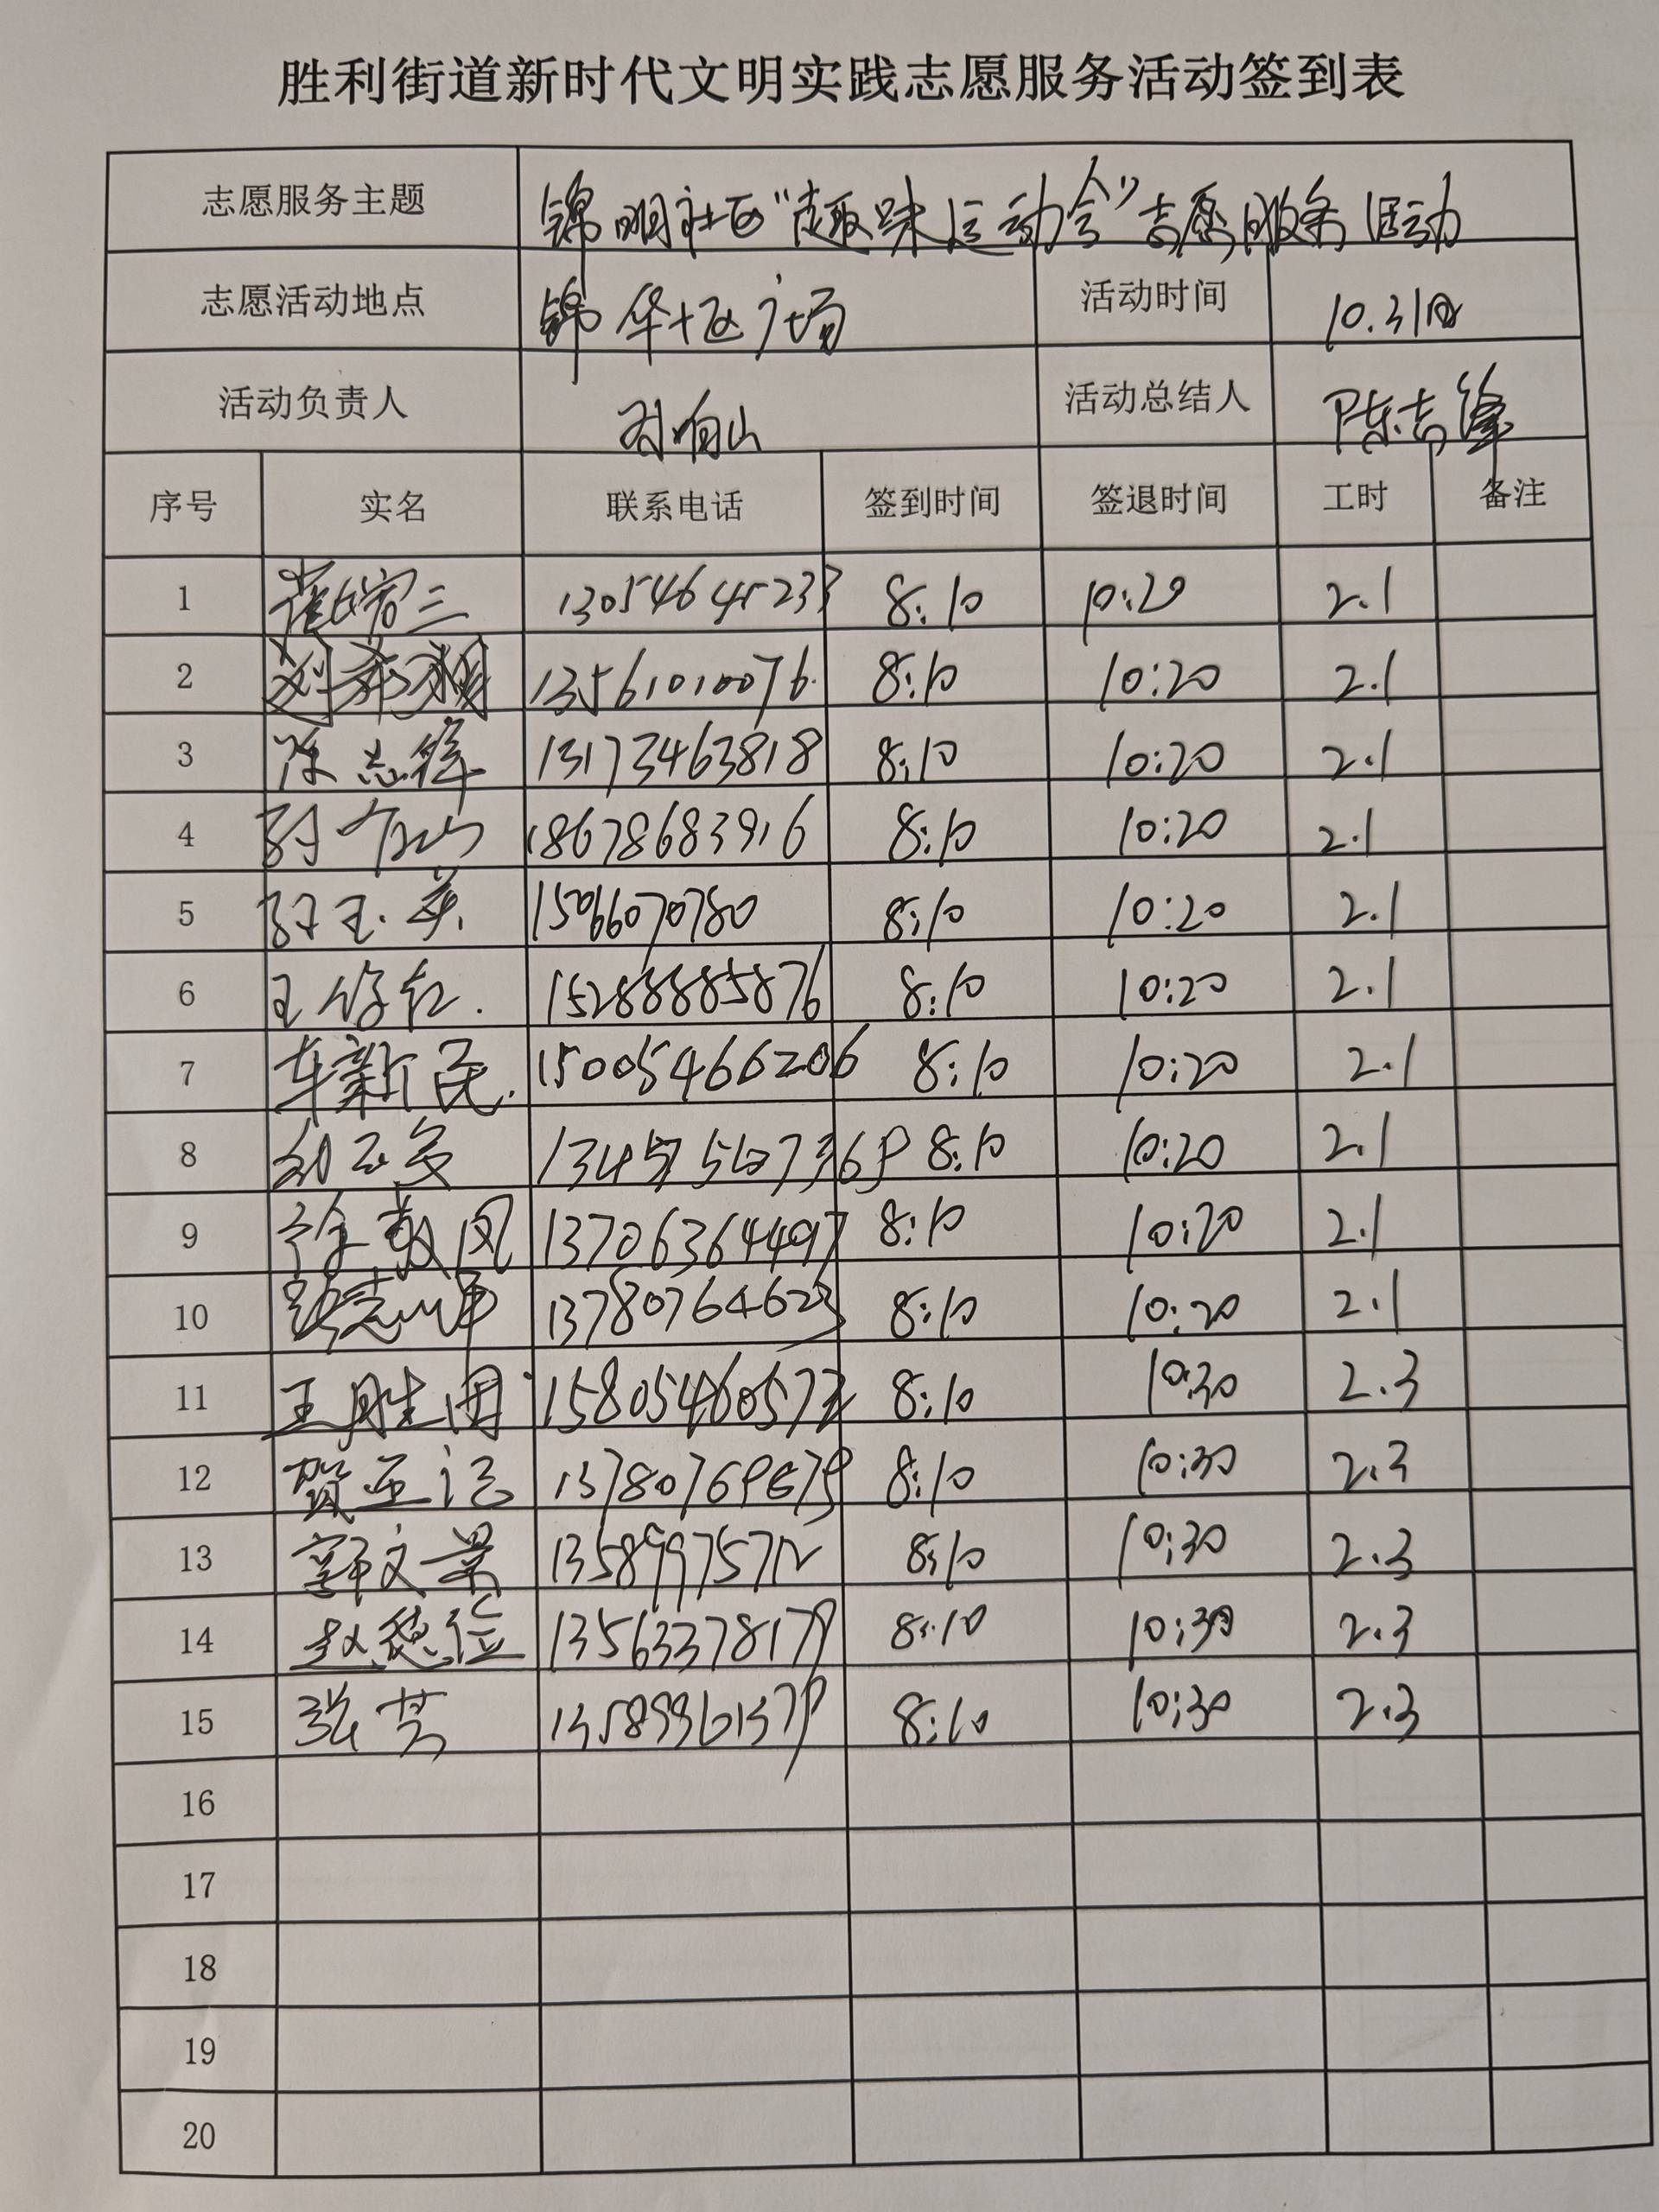 胜利街道新时代文明实践志愿服务活动签到表
志愿服务主题 锦明社区“趣味运动会”志愿服务活动
志愿活动地点 锦华十区广场 活动时间 10.31日
活动负责人 孙有山 活动总结人 陈志锋
序号 实名 联系电话 签到时间 签退时间 工时 备注
1 三 8:10 10:20 2.1
2 13561010076 8:10 10:20 2.1
3 陈志锋 13173463818 8:10 10:20 2.1
4 孙有山 18678683916 8:10 10:20 2.1
5 孙玉英 15066070780 8:10 10:20 2.1
6 王 红 15288885876 8:10 10:20 2.1
7 车新民 15005466206 8:10 10:20 2.1
8 8:10 10:20 2.1
9 徐 凤 13706364497 8:10 10:20 2.1
10 路志军 13780764623 8:10 10:20 2.1
11 王胜田 8:10 10:30 2.3
12 贺 8:10 10:30 2.3
13 郭文景 8:10 10:30 2.3
14 赵德 13563378179 8:10 10:30 2.3
15 张 13589961379 8:10 10:30 2.3
16
17
18
19
20